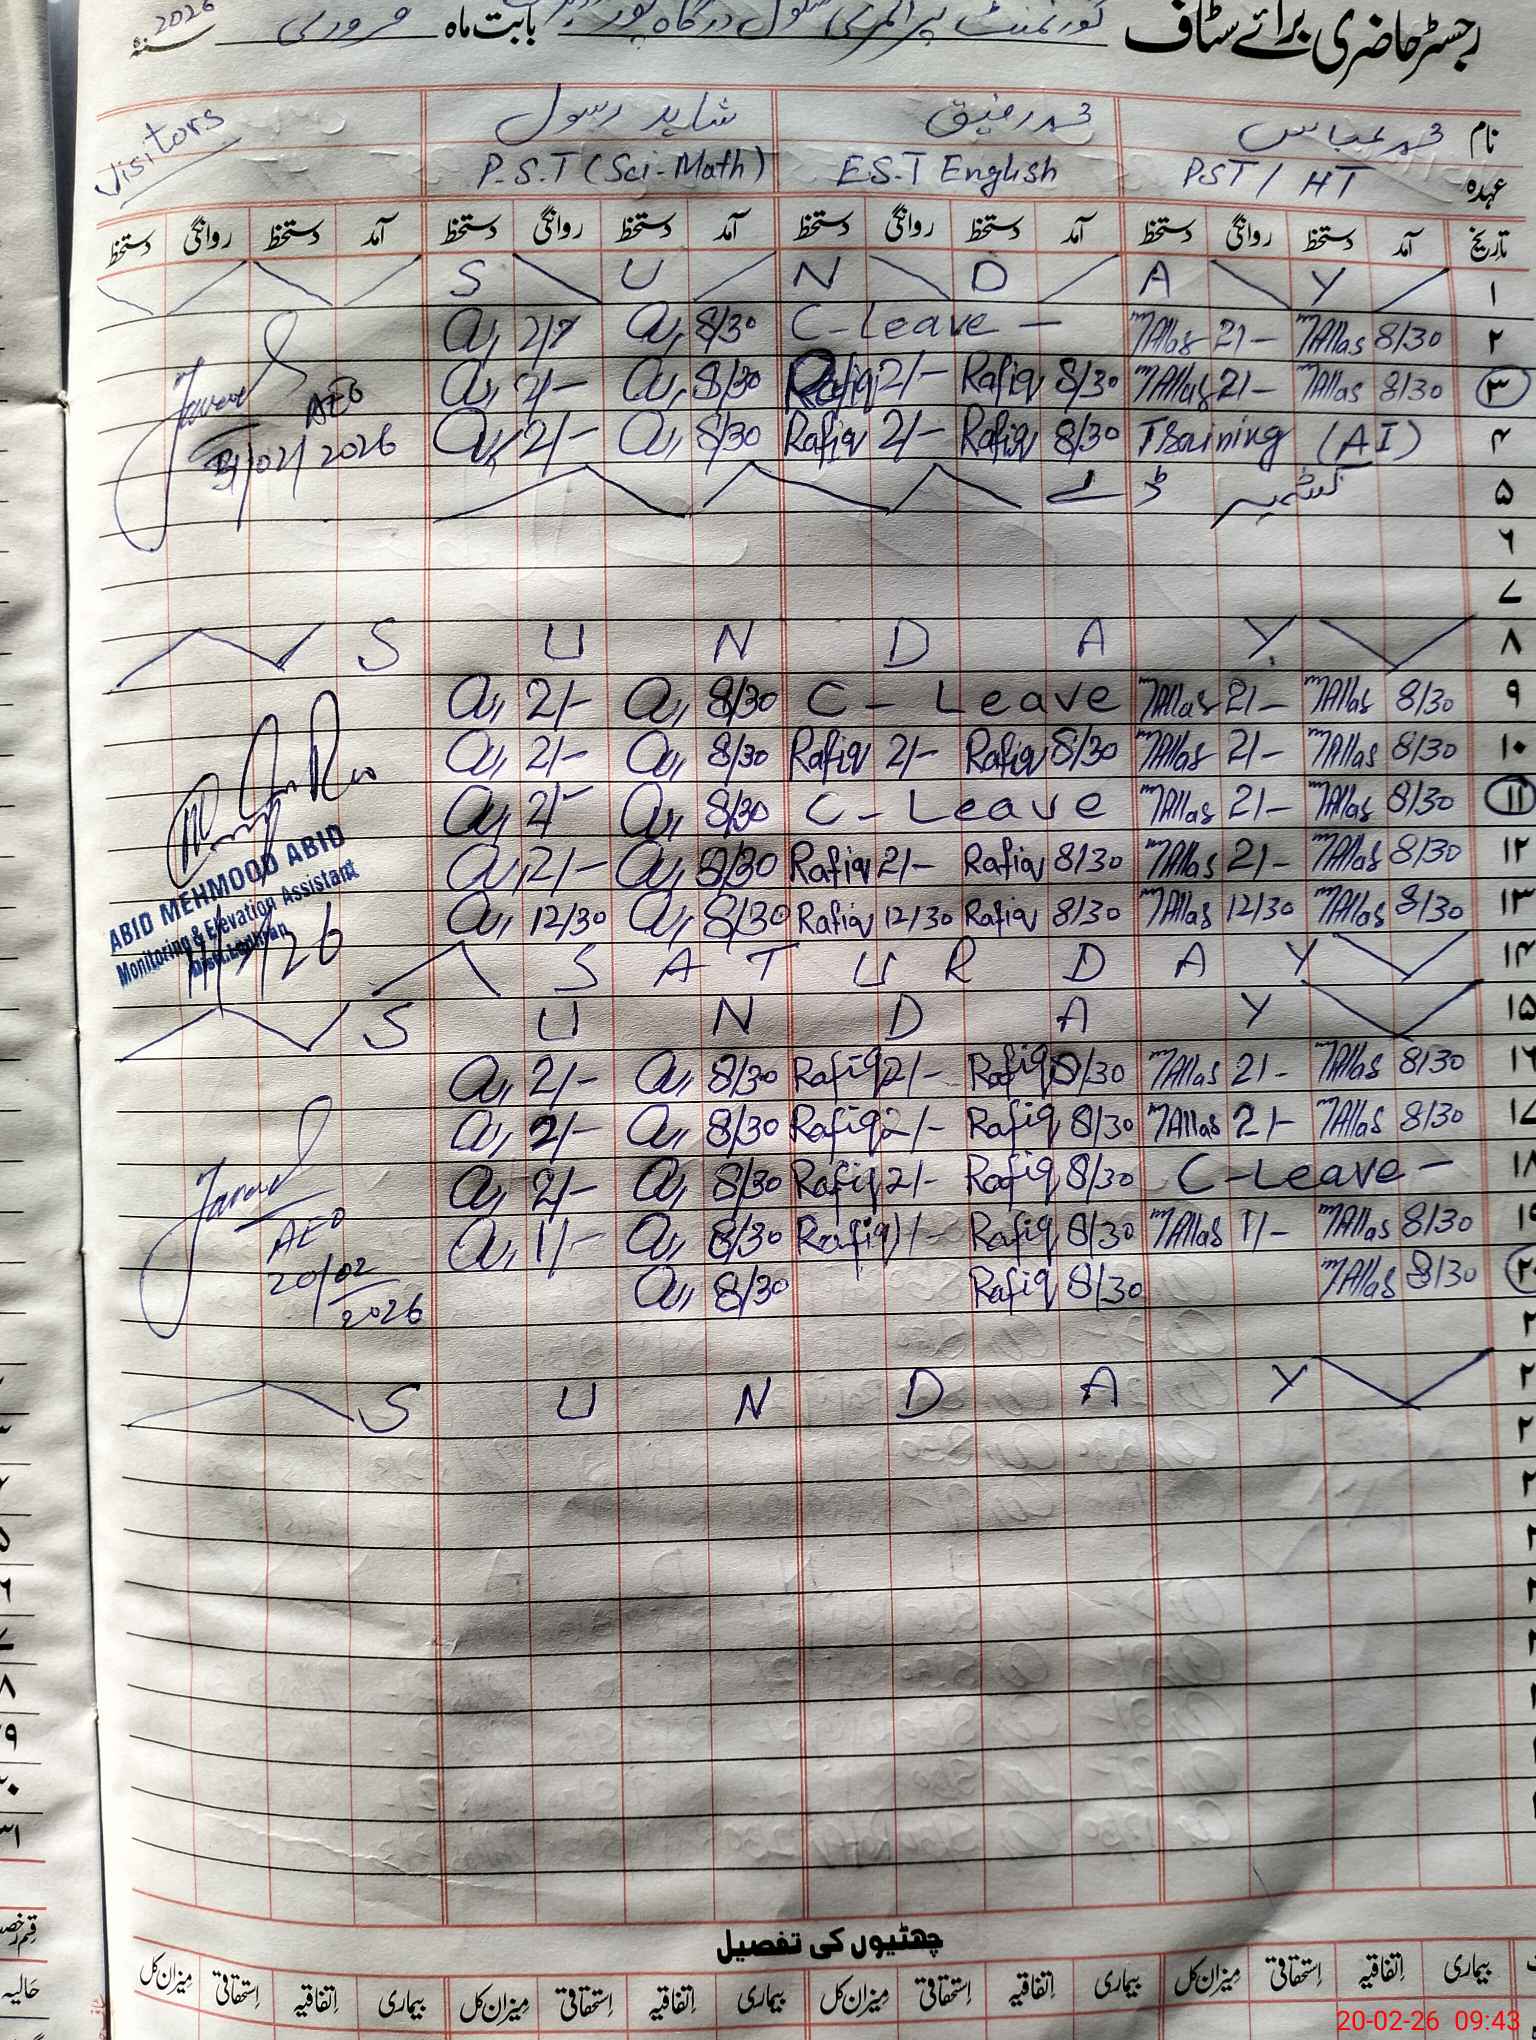 رجسٹر حاضری برائے سٹاف گورنمنٹ پرائمری سکول درگاہ پور بابت ماہ فروری سنہ 2026
نام محمد عباس محمد رفیق شاہد رسول Visitors
عہدہ PST / HT E.S.T English P.S.T (Sci-Math)
تاریخ آمد دستخط روانگی دستخط آمد دستخط روانگی دستخط آمد دستخط روانگی دستخط آمد دستخط روانگی دستخط
۱ S U N D A Y
۲ a, a, 8/30 C-Leave - mAllas 21- mAllas 8/30
۳ a, 2/- a, 8/30 Rafiq 2/- Rafiq 8/30 mAllas 21- mAllas 8/30
Javed AEO
۴ a, 2/- a, 8/30 Rafiq 2/- Rafiq 8/30 Training (AI)
/02/2026
۵ کشمیر ڈے
۶
۷
۸ S U N D A Y
۹ a, 2/- a, 8/30 C - Leave mAllas 21- mAllas 8/30
۱۰ a, 2/- a, 8/30 Rafiq 2/- Rafiq 8/30 mAllas 21- mAllas 8/30
۱۱ a, 2/- a, 8/30 C - Leave mAllas 21- mAllas 8/30
۱۲ a, 2/- a, 8/30 Rafiq 2/- Rafiq 8/30 mAllas 21- mAllas 8/30
ABID MEHMOOD ABID
Monitoring & Elevation Assistant
Distt. Lodhran
11/2/26
۱۳ a, 12/30 a, 8/30 Rafiq 12/30 Rafiq 8/30 mAllas 12/30 mAllas 8/30
۱۴ S A T U R D A Y
۱۵ S U N D A Y
۱۶ a, 2/- a, 8/30 Rafiq 2/- Rafiq 8/30 mAllas 21- mAllas 8/30
۱۷ a, 2/- a, 8/30 Rafiq 2/- Rafiq 8/30 mAllas 21- mAllas 8/30
۱۸ a, 2/- a, 8/30 Rafiq 2/- Rafiq 8/30 C-Leave -
Javed
AEO
20/02/2026
۱۹ a, 1/- a, 8/30 Rafiq 1/- Rafiq 8/30 mAllas 1/- mAllas 8/30
۲۰ a, 8/30 Rafiq 8/30 mAllas 8/30
S U N D A Y
چھٹیوں کی تفصیل
بیماری اتفاقیہ استحقاقی میزان کل بیماری اتفاقیہ استحقاقی میزان کل بیماری اتفاقیہ استحقاقی میزان کل
20-02-26 09:43